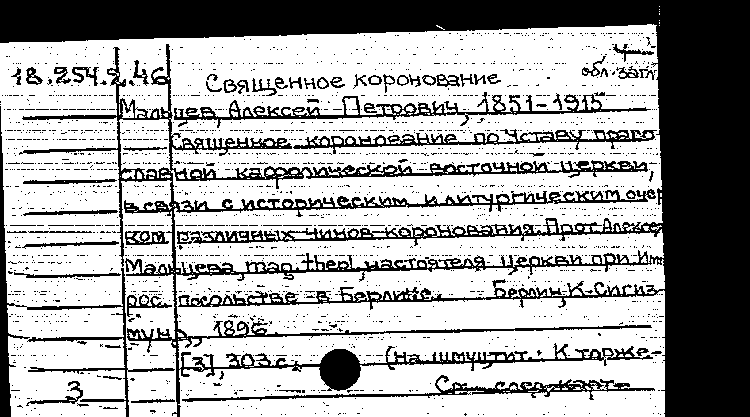 4
18.254.2.46 Священное коронование обл. загл.
Мальцев, Алексей Петрович, 1851-1915
Священное коронование по Уставу право
славной кафолической восточной церкви,
в связи с историческим и литургическим очер
ком различных чинов коронования. Прот. Алексея
Мальцева, mag. theol, настоятеля церкви при Имп
рос. посольстве в Берлине. Берлин, К. Сигиз-
мунд, 1896.
[3], 303 с. (на шмуцтит.: К торже-
3 См. след. карт.